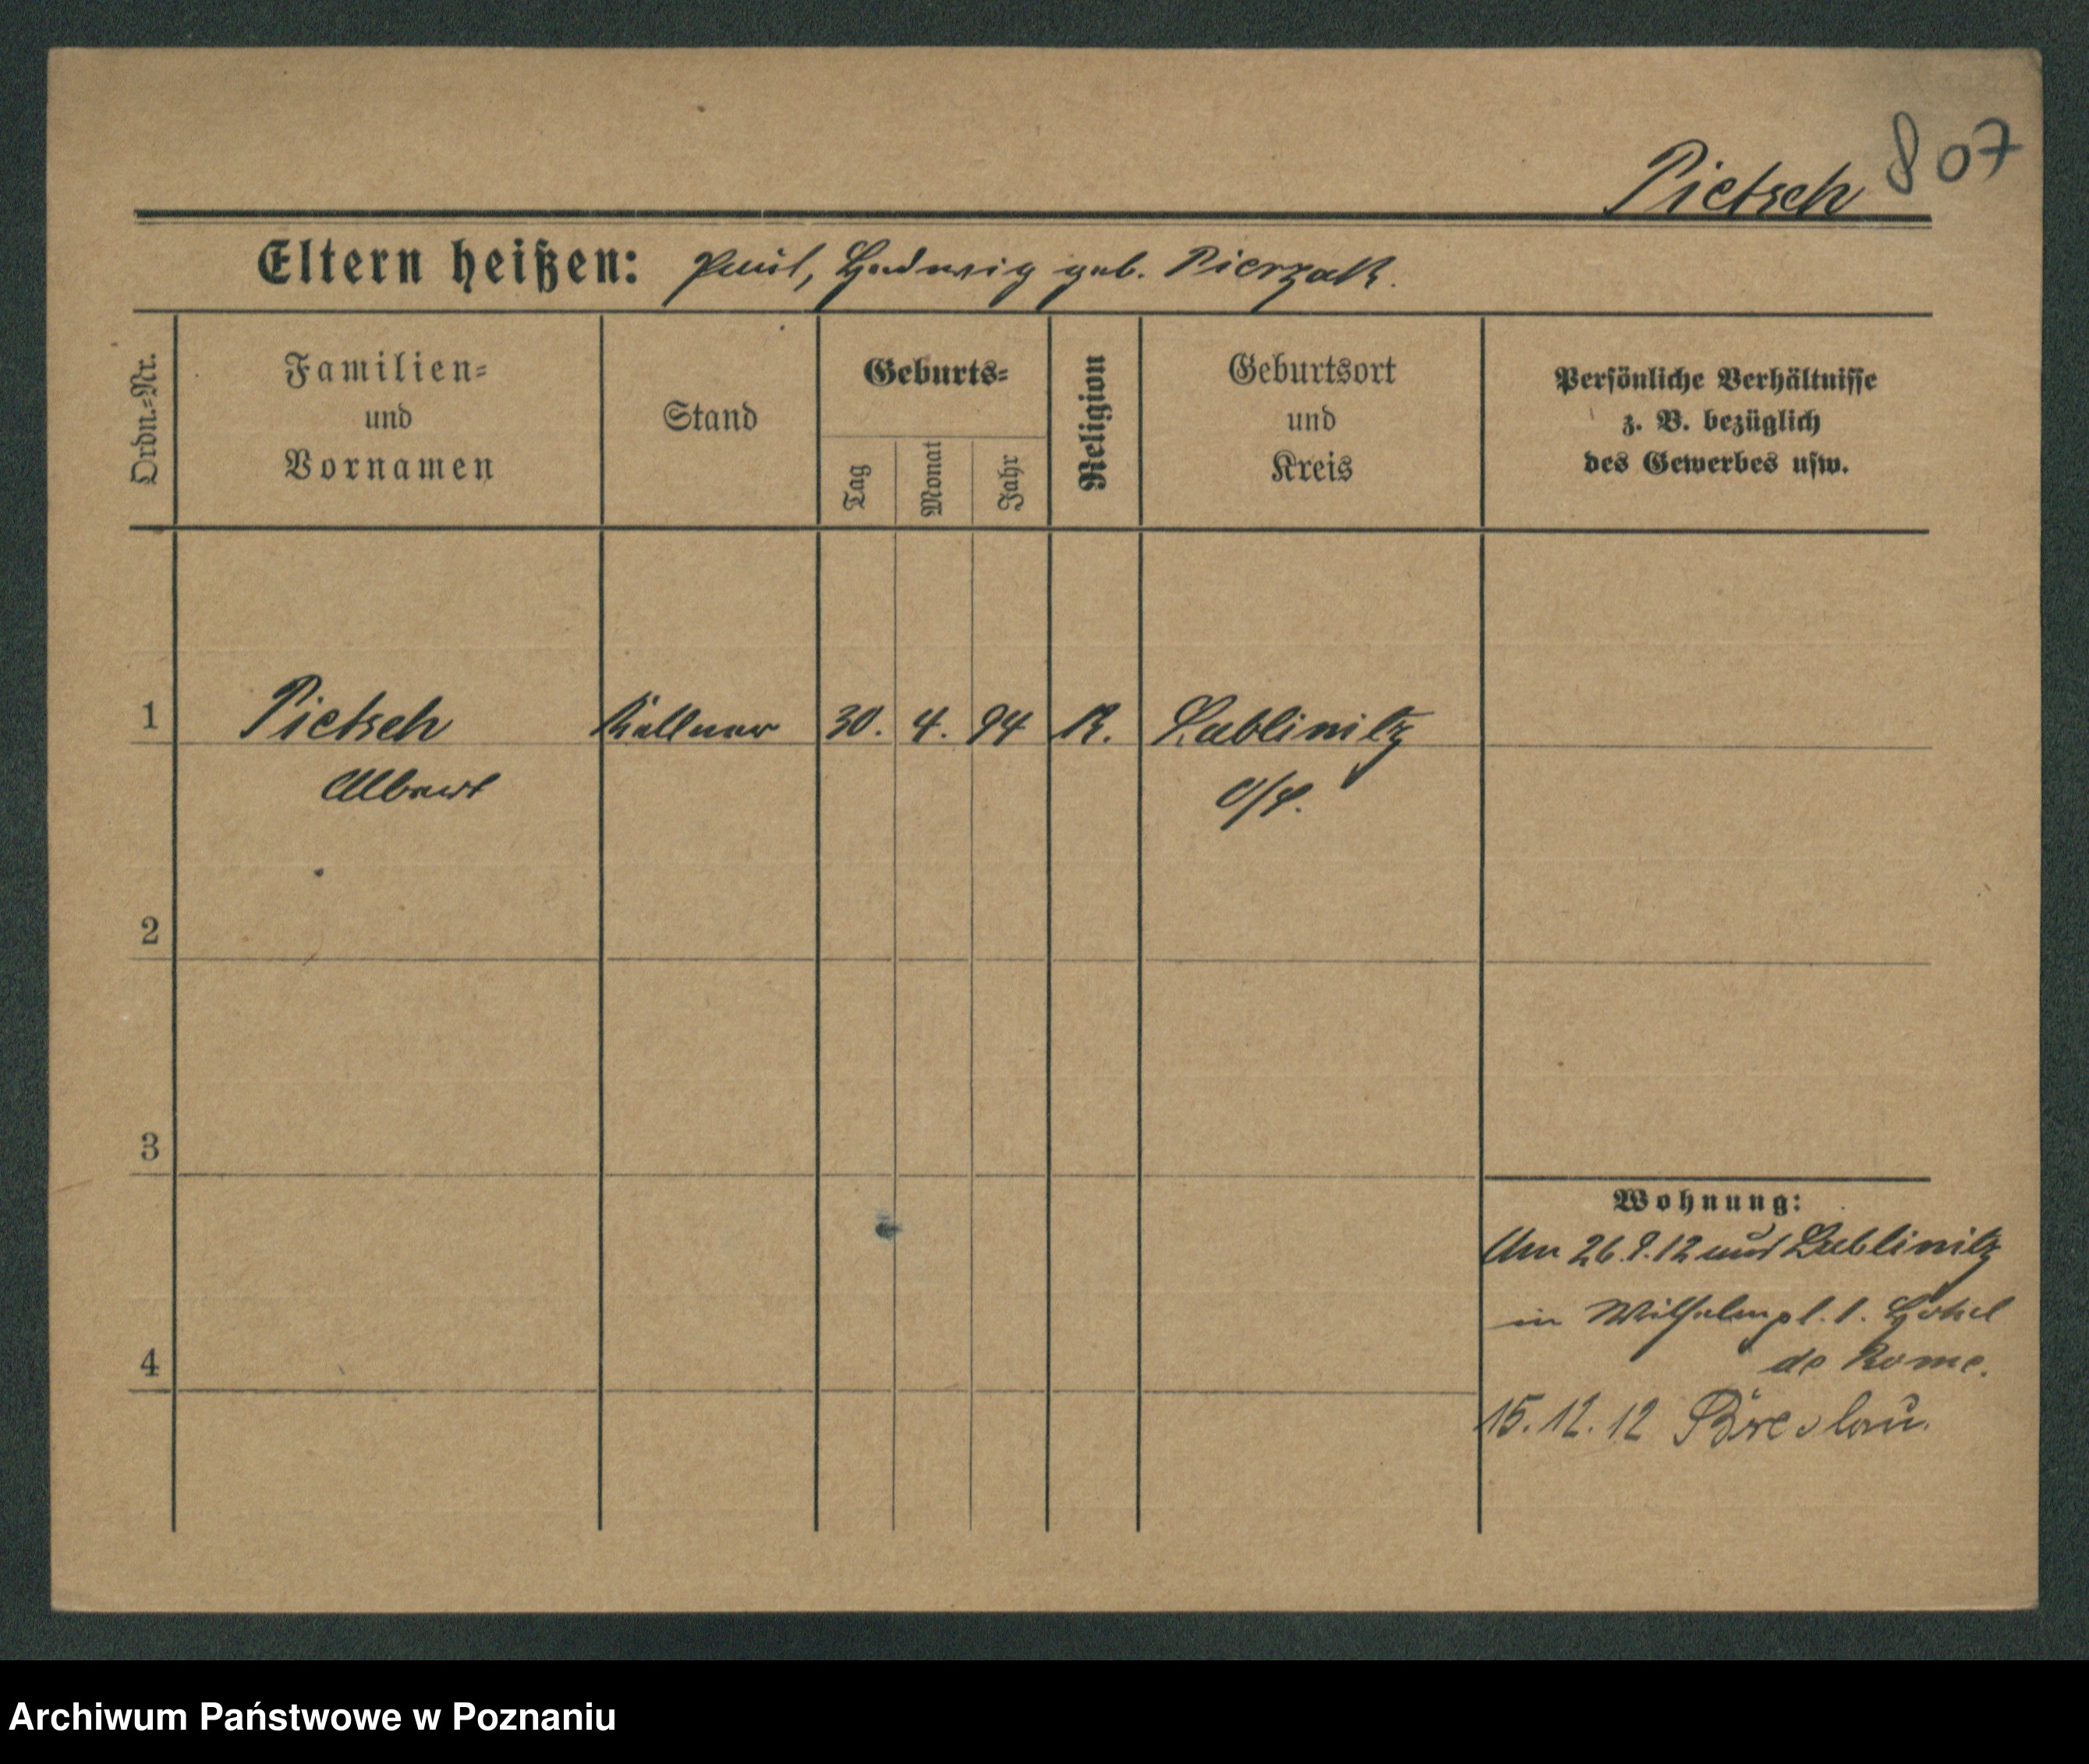 807
Pietsch
Eltern heißen: Paul, Hedwig geb. Pierzak.
Ordn.-Nr.
Familien-
und
Vornamen
Stand
Geburts-
Tag
Monat
Jahr
Religion
Geburtsort
und
Kreis
Persönliche Verhältnisse
z. B. bezüglich
des Gewerbes usw.
1 Pietsch Kellner 30. 4. 94 K. Lublinitz
Albert O/S.
2
3
4
Wohnung:
Am 26.9.12 aus Lublinitz
in Wilhelmpl. 1. Hotel
de Rome.
15.12.12 Breslau.
Archiwum Państwowe w Poznaniu